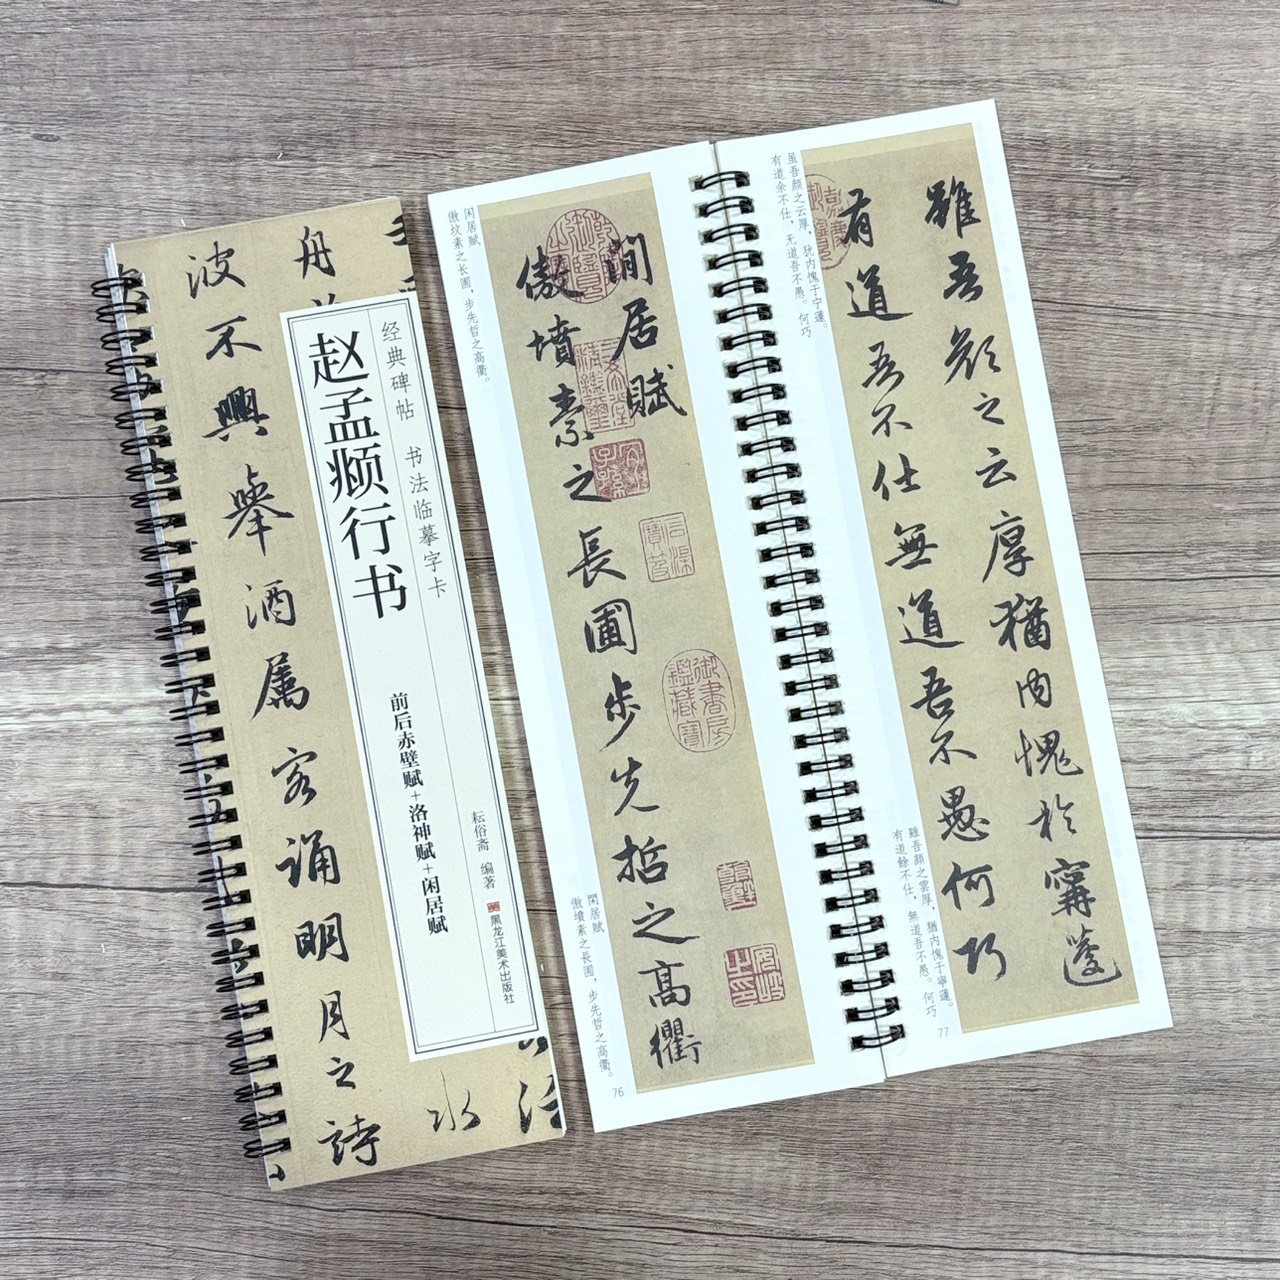 波不興舉酒属客诵明月之詩
舟
水
经典碑帖 书法临摹字卡
赵孟頫行书
前后赤壁赋+洛神赋+闲居赋
耘俗斋 编著
黑龙江美术出版社
闲居赋
傲坟素之长圃，步先哲之高衢。
閒居賦
傲墳素之長圃步先哲之高衢
御書房鑑藏寶
閑居賦
傲墳素之長圃，步先哲之高衢。
76
虽吾颜之云厚，犹内愧于宁蘧。
有道余不仕，无道吾不愚。何巧
雖吾顏之云厚猶内愧於甯蘧
有道吾不仕無道吾不愚何巧
雖吾顏之雲厚，猶内愧于寧蘧。
有道餘不仕，無道吾不愚。何巧
77